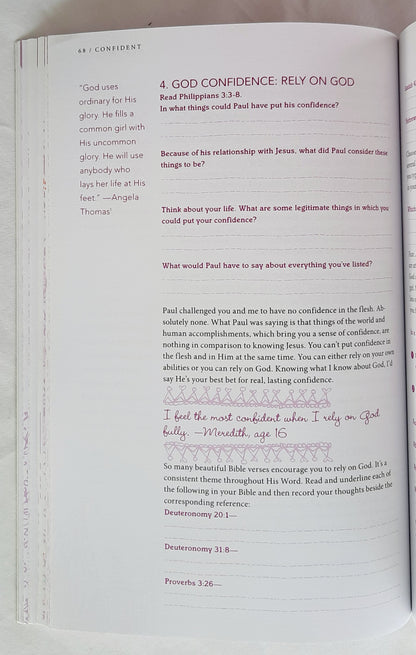 68 / CONFIDENT
"God uses
ordinary for His
glory. He fills a
common girl with
His uncommon
glory. He will use
anybody who
lays her life at His
feet." —Angela
Thomas
4. GOD CONFIDENCE: RELY ON GOD
Read Philippians 3:3-8.
In what things could Paul have put his confidence?
Because of his relationship with Jesus, what did Paul consider these
things to be?
Think about your life. What are some legitimate things in which you
could put your confidence?
What would Paul have to say about everything you've listed?
Paul challenged you and me to have no confidence in the flesh. Ab-
solutely none. What Paul was saying is that things of the world and
human accomplishments, which bring you a sense of confidence, are
nothing in comparison to knowing Jesus. You can't put confidence in
the flesh and in Him at the same time. You can either rely on your own
abilities or you can rely on God. Knowing what I know about God, I'd
say He's your best bet for real, lasting confidence.
I feel the most confident when I rely on God
fully. —Meredith, age 16
So many beautiful Bible verses encourage you to rely on God. It's a
consistent theme throughout His Word. Read and underline each of
the following in your Bible and then record your thoughts beside the
corresponding reference:
Deuteronomy 20:1—
Deuteronomy 31:8—
Proverbs 3:26—